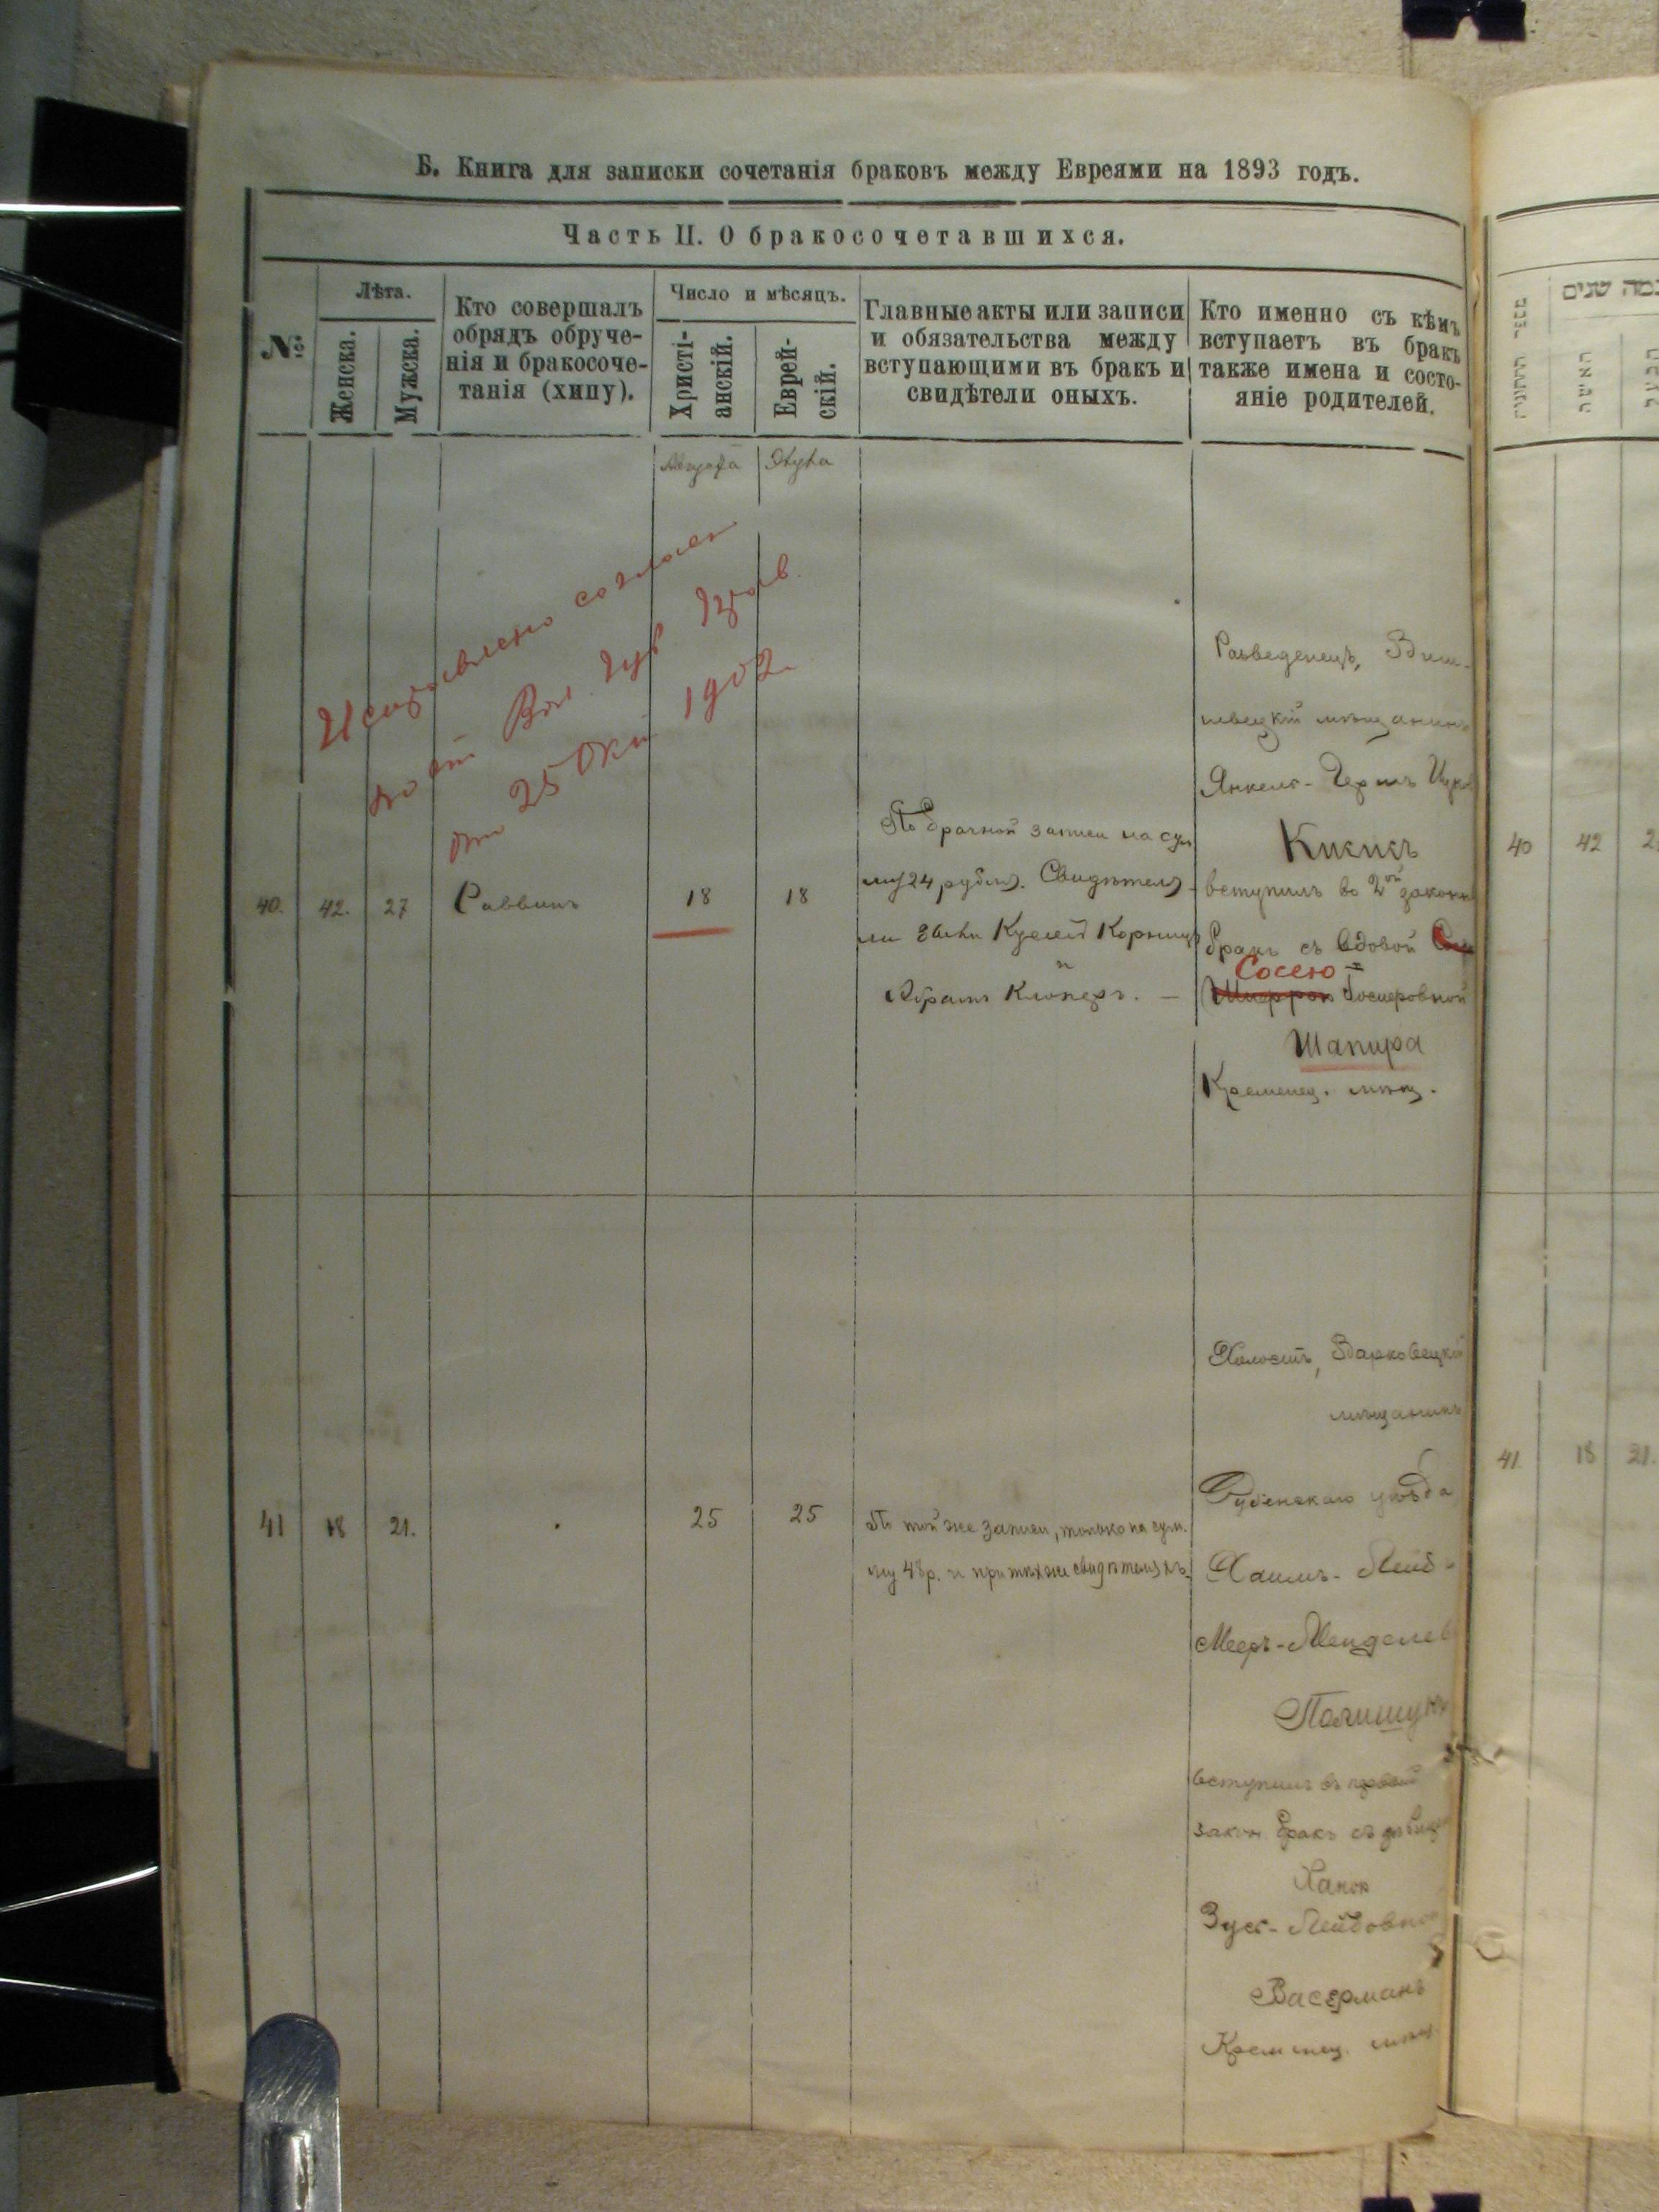 Б. Книга для записки сочетанія браковъ между Евреями на 1893 годъ.
Часть II. О бракосочетавшихся.
№
Лѣта.
Женска.
Мужска.
Кто совершалъ
обрядъ обруче-
нія и бракосоче-
танія (хипу).
Число и мѣсяцъ.
Христі-
анскій.
Еврей-
скій.
Главные акты или записи
и обязательства между
вступающими въ бракъ и
свидѣтели оныхъ.
Кто именно съ кѣмъ
вступаетъ въ бракъ
также имена и состо-
яніе родителей.
Августа
Элула
Исправлено соглас
но от Вол Губ Прав.
от 25 Окт 1902
40.
42.
27
Раввинъ
18
18
По брачной записи на сум
му 24 рубля. Свидѣтели
Корницъ
и
Абрамъ Клоперъ. —
Разведенецъ,
мѣщанинъ
Янкель-Гершъ
Кикисъ
вступилъ во 2ой законн
бракъ съ вдовой
Сосею =
Іосифовной
Шапира
Кременец. мѣщ.
41
18
21.
25
25
По той же записи, только на сум.
му 48 р. и при тѣхже свидѣтеляхъ.
Холостъ,
мѣщанинъ
Дубенскаго уѣзда
Хаимъ-Лейб-
Мееръ-Менделев
Полищукъ
вступилъ въ первый
закон бракъ съ дѣвицей
Ханой
Зусь-Лейбовной
Васерманъ
Кременец. мѣщ.
40
42
2
41.
18
21.
כמה שנים